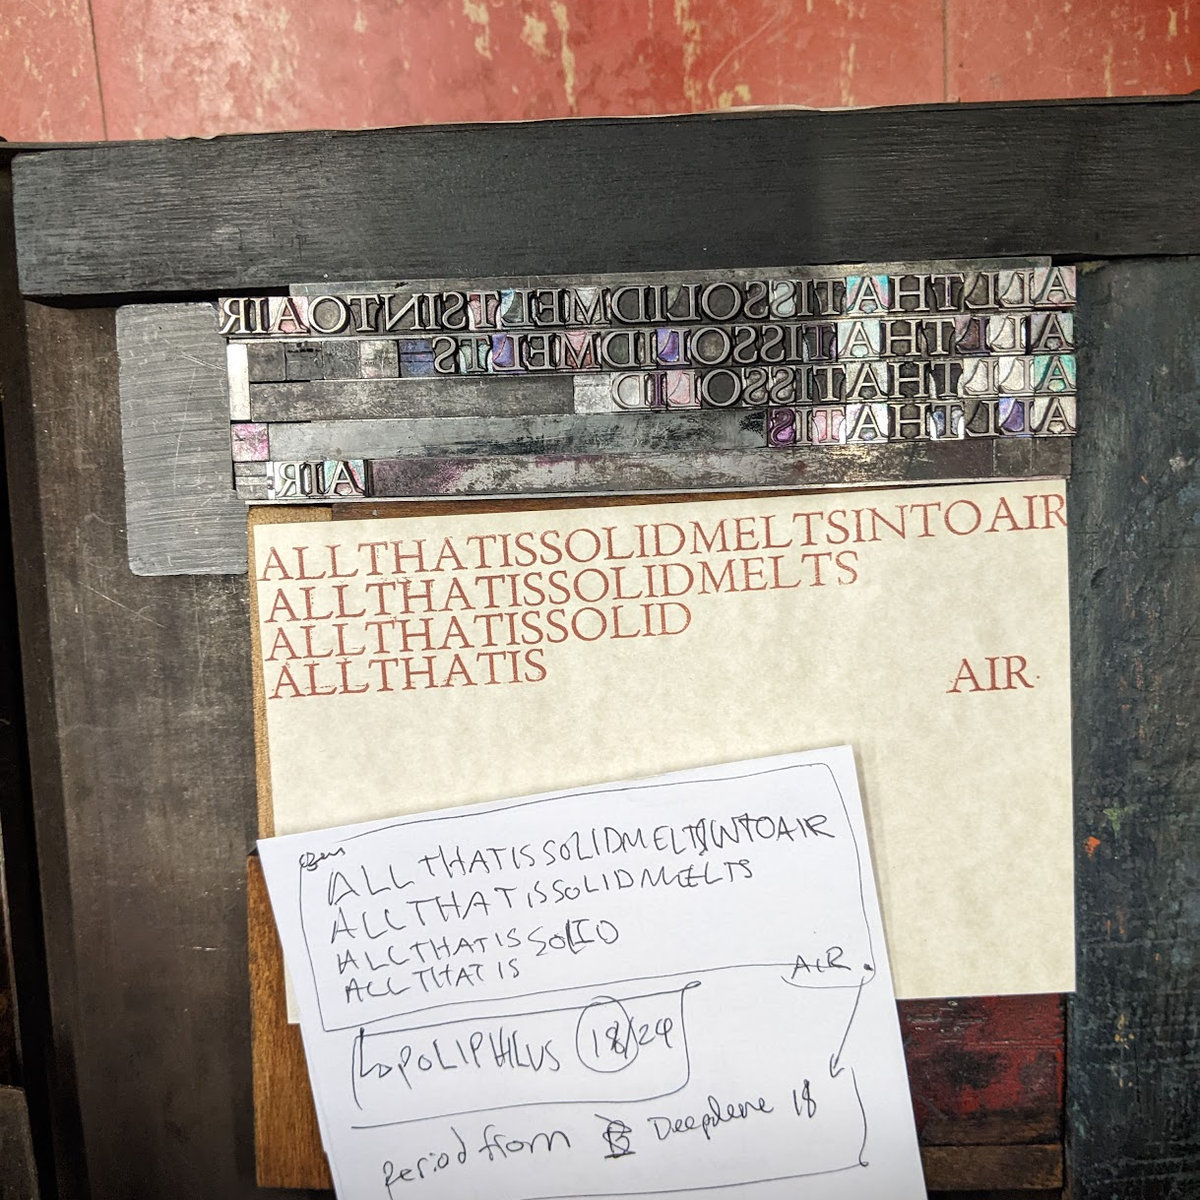 ALLTHATISSOLIDMELTSINTOAIR
ALLTHATISSOLIDMELTS
ALLTHATISSOLID
ALLTHATIS
AIR
ALLTHATISSOLIDMELTSINTOAIR
ALLTHATISSOLIDMELTS
ALLTHATISSOLID
ALLTHATIS AIR.
ALLTHATISSOLIDMELTSINTOAIR
ALLTHATISSOLIDMELTS
ALLTHATISSOLID
ALLTHATIS
AIR.
POLIPHILUS 18/24
period from Deepdene 18